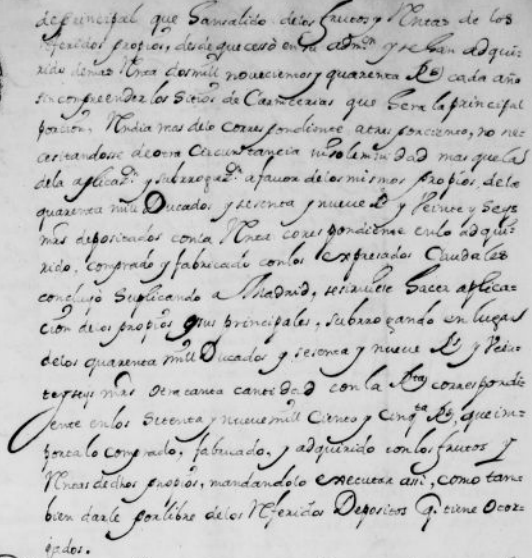 de principal que han salido de los frutos y Rentas de los
referidos propios, desde que cesò en su admon y se han adqui-
rido demas Renta dos mill novecientos y quarenta Rs cada año
sin compreender los Sitios de Carnicerias que sera la principal
porcion, Rendia mas de lo correspondiente a tres por ciento, no ne-
cesitandosse de otra Circunstancia ni solemnidad mas que las
de la aplicazn y subrrogazn a favor de los mismos propios, de los
quarenta mill Ducados y sesenta y nueve Rs y Veinte y Seys
mrs depositados con la Renta correspondiente en lo adqui-
rido, comprado y fabricado con los expresados Caudales
concluyò Suplicando a Madrid, se sirviese hacer aplica-
cion de los propios y sus principales, subrrogando en lugar
de los quarenta mill Ducados y sesenta y nueve Rs y Vein-
te y seys mrs otra tanta cantidad con la Rta correspondi-
ente en los Setenta y nueve mill Ciento y Cinqta Rs, que im-
porta lo comprado, fabricado, y adquirido con los frutos y
Rentas de dhos propios, mandandolo executar assi, como tam-
bien darle por libre de los Referidos Depositos q. tiene otor-
gados.